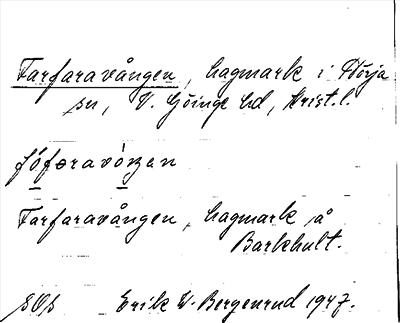 Farfaravången, hagmark i Hörja
sn, V. Göinge hd, Krist. l.
fófǝravóŋan
Farfaravången, hagmark å
Barkhult.
Erik W. Bergenrud 1947.